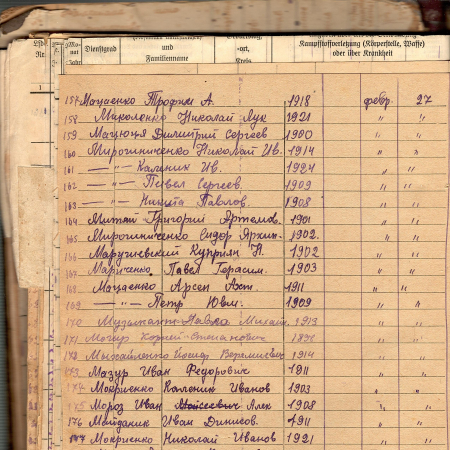 Dienstgrad
und
Familienname
-ort,
Kreis
Kampfstoffverletzung (Körperstelle, Waffe)
oder über Krankheit
1
157 Мациенко Трофим А. 1918 февр. 27
158 Миколенко Николай Лук 1921 " "
159 Мацюця Димитрий Сергеев 1900 " "
160 Мирошниченко Николай Ив. 1914 " "
161 —"— Калиник Ив. 1924 " "
162 —"— Павел Сергеев. 1909 " "
163 —"— Никита Павлов. 1908 " "
164 Митяй Григорий Артемов. 1901 " "
165 Мирошниченко Сидор 1902 " "
166 Куприян 1902 " "
167 Мариченко Павел Герасим. 1903 " "
168 Мацаенко Арсен 1911 " "
169 —"— Петр 1909 " "
170 Музыкант Павло Михаил. 1913 " "
171 Корней Степанович 1896 " "
172 Михайленко 1914 " "
173 Мазур Иван Федорович 1911 " "
174 Мокриенко Калоник Иванов 1903 " "
175 Мороз Иван Моисеевич Алек 1908 " "
176 Майданик Иван Денисов. 1911 " "
177 Мокриенко Николай Иванов 1921 " "